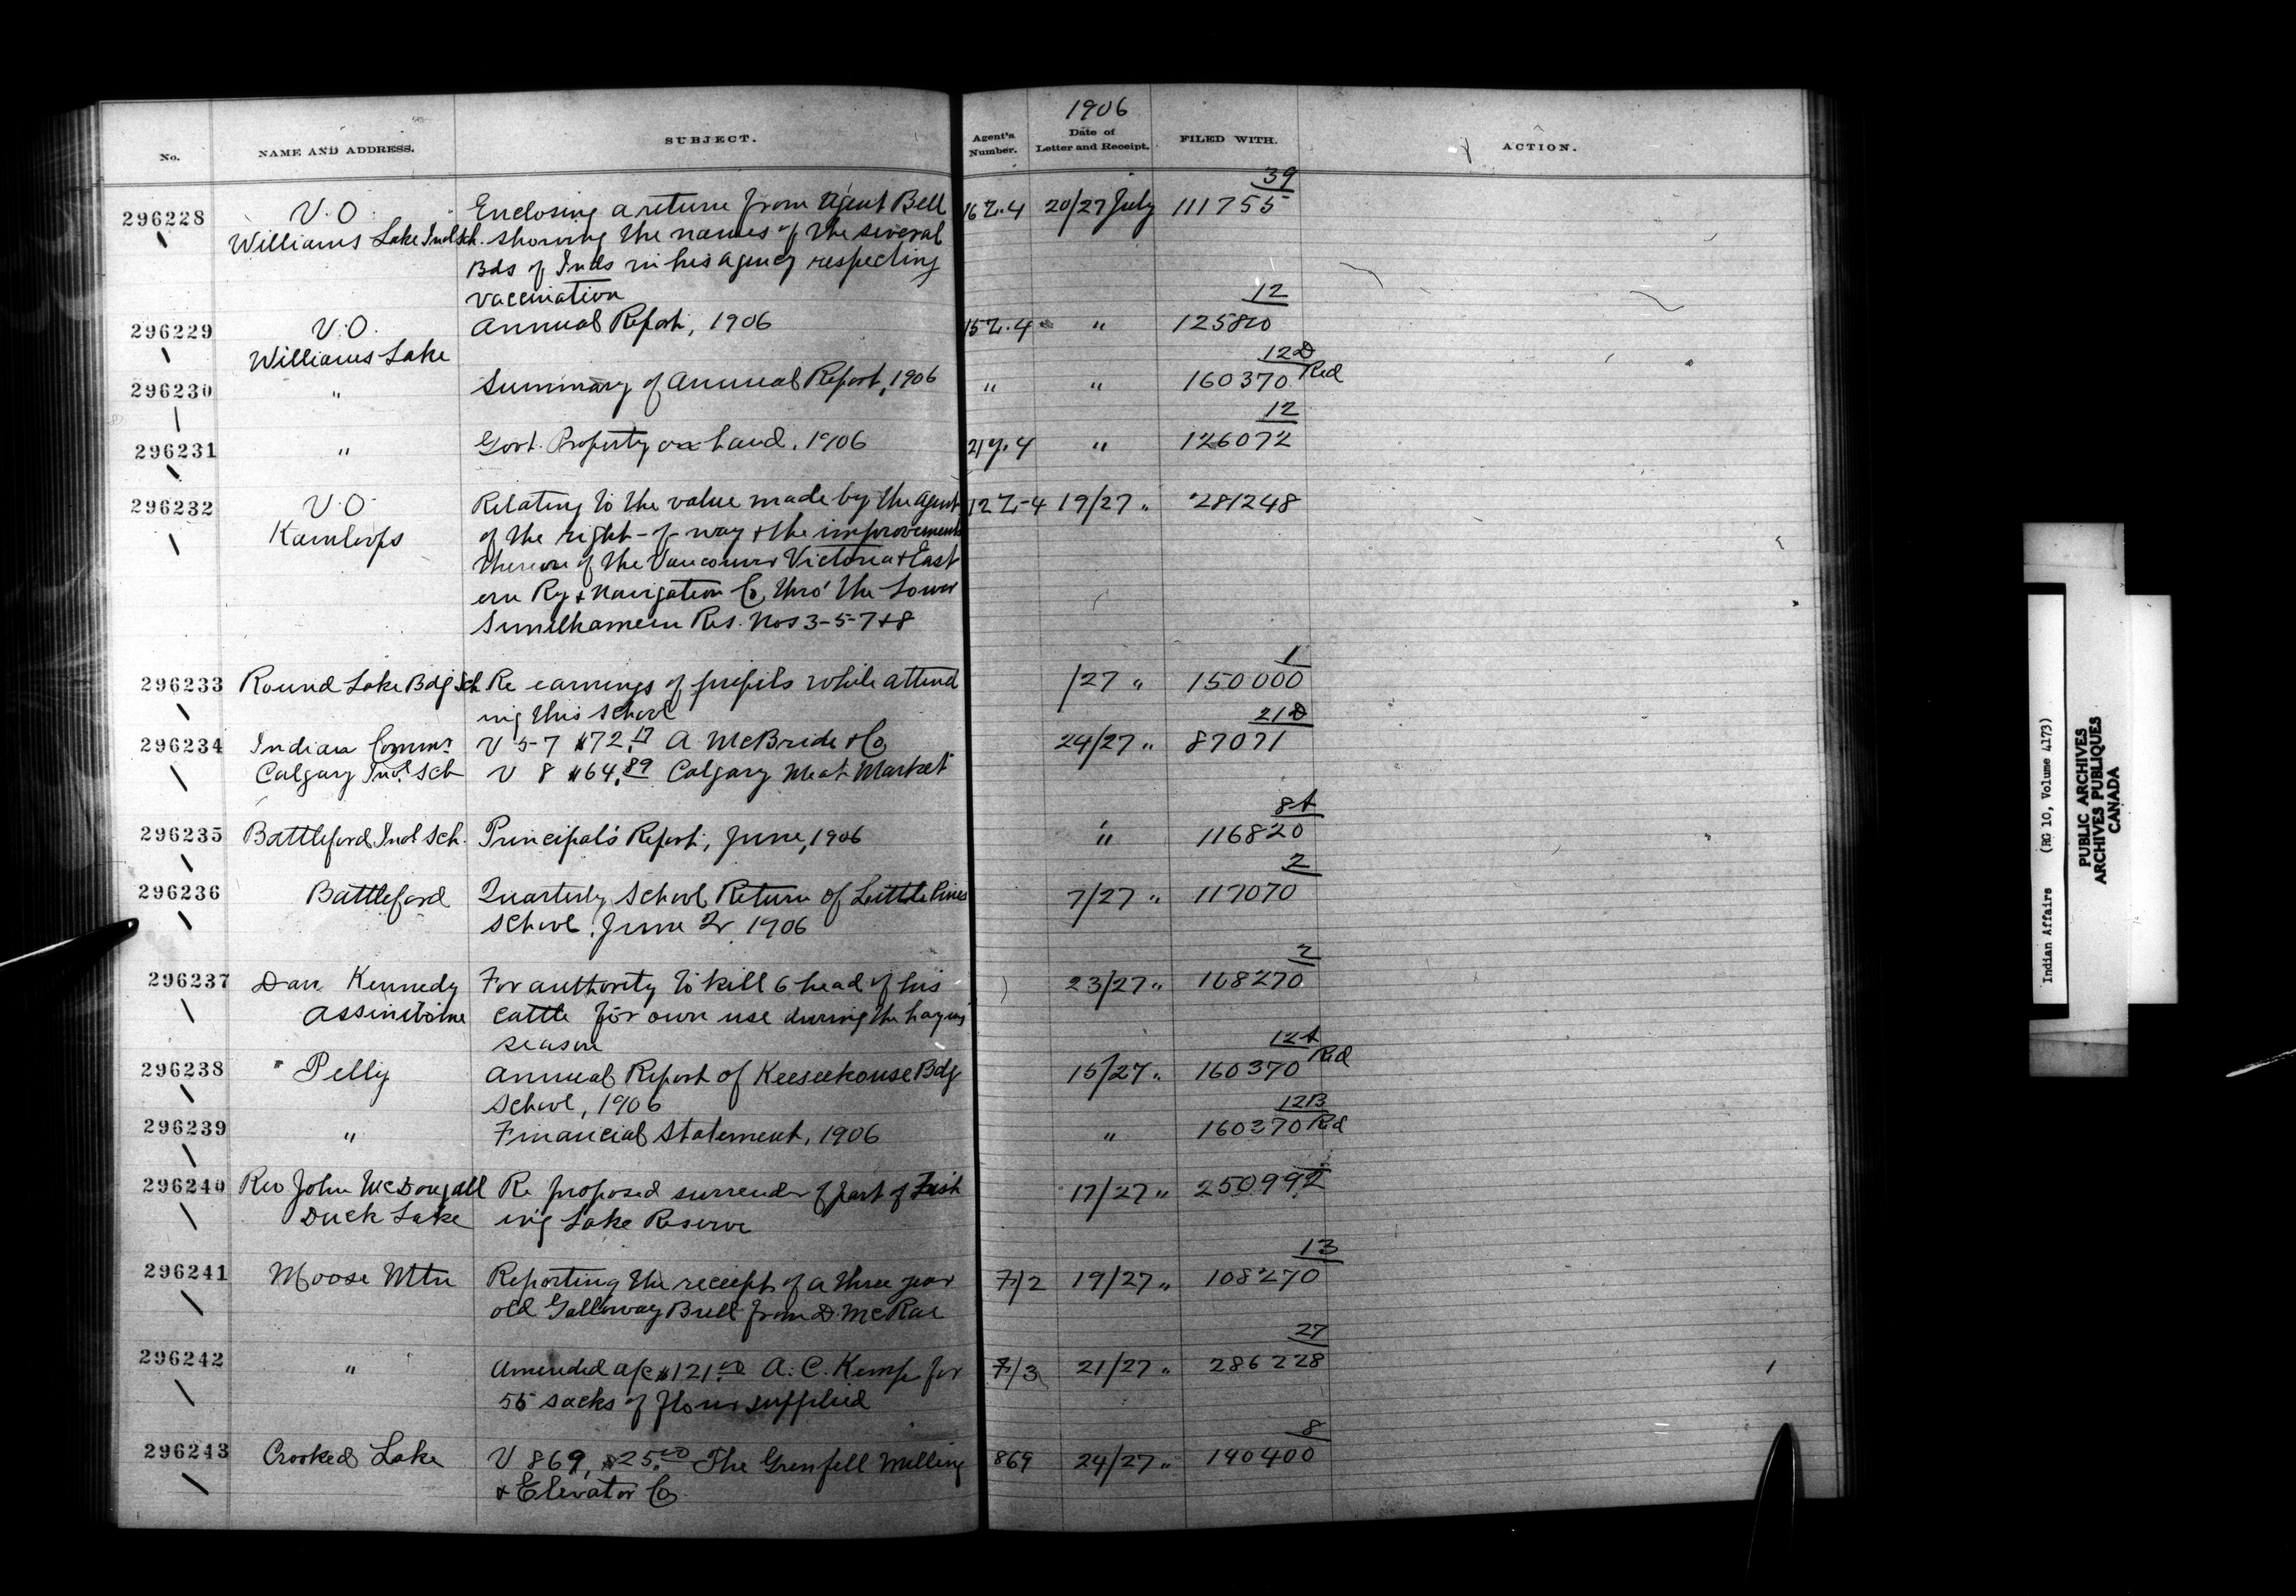 1906
No. NAME AND ADDRESS. SUBJECT. Agent's Number. Date of Letter and Receipt. FILED WITH. ACTION.
39
296228 V.O. Enclosing a return from Agent Bell 16 Z.4 20/27 July 111755
Williams Lake Indl Sch. showing the names of the several
Bds of Inds in his agency respecting
vaccination
12
296229 V.O. Annual Report, 1906 15 Z.4 " 125820
Williams Lake
12D
296230 " Summary of Annual Report, 1906 " " 160370 Red
12
296231 " Govt. Property on hand, 1906 " 126072
296232 V.O. Relating to the value made by the Agent 12 Z-4 19/27 " 281248
Kamloops of the right-of-way & the improvements
thereon of the Vancouver Victoria & East
ern Ry & Navigation Co, thro' the Lower
Similkameen Res. Nos 3-5-7 & 8
1
296233 Round Lake Bdg Sch Re earnings of pupils while attend /27 " 150000
ing this School
21D
296234 Indian Commr V 5-7 $72.17 A McBride & Co 24/27 " 87071
Calgary Indl Sch V 8 $64.89 Calgary Meat Market
8A
296235 Battleford Indl Sch. Principal's Report, June, 1906 " 116820
2
296236 Battleford Quarterly School Return of Little Pines 7/27 " 117070
School, June 1906
2
296237 Dan Kennedy For authority to kill 6 head of his 23/27 " 168270
Assiniboine cattle for own use during the haying
season
12A
296238 Pelly Annual Report of Keeseekouse Bdg 15/27 " 160370 Red
School, 1906
12B
296239 " Financial Statement, 1906 " 160370 Red
296240 Rev John McDougall Re proposed surrender of part of Fish 17/27 " 250992
Duck Lake ing Lake Reserve
13
296241 Moose Mtn Reporting the receipt of a three year 7/2 19/27 " 108270
old Galloway Bull from D. McRae
27
296242 " Amended a/c $121.00 A. C. Kemp for 7/3 21/27 " 286228
55 sacks of flour supplied
8
296243 Crooked Lake V 869, $25.00 The Grenfell Milling 869 24/27 " 190400
& Elevator Co
Indian Affairs (RG 10, Volume 4173)
PUBLIC ARCHIVES
ARCHIVES PUBLIQUES
CANADA